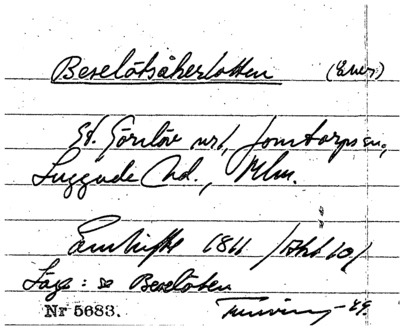 Beselåtsåkerlotten (Ensk.)
St. Görslöv nr 1, Jonstorps sn,
Luggude hd., Mlm.
Enskifte 1811 /Akt 10/
Läge: se Beselåten
Nr 5683. -49.